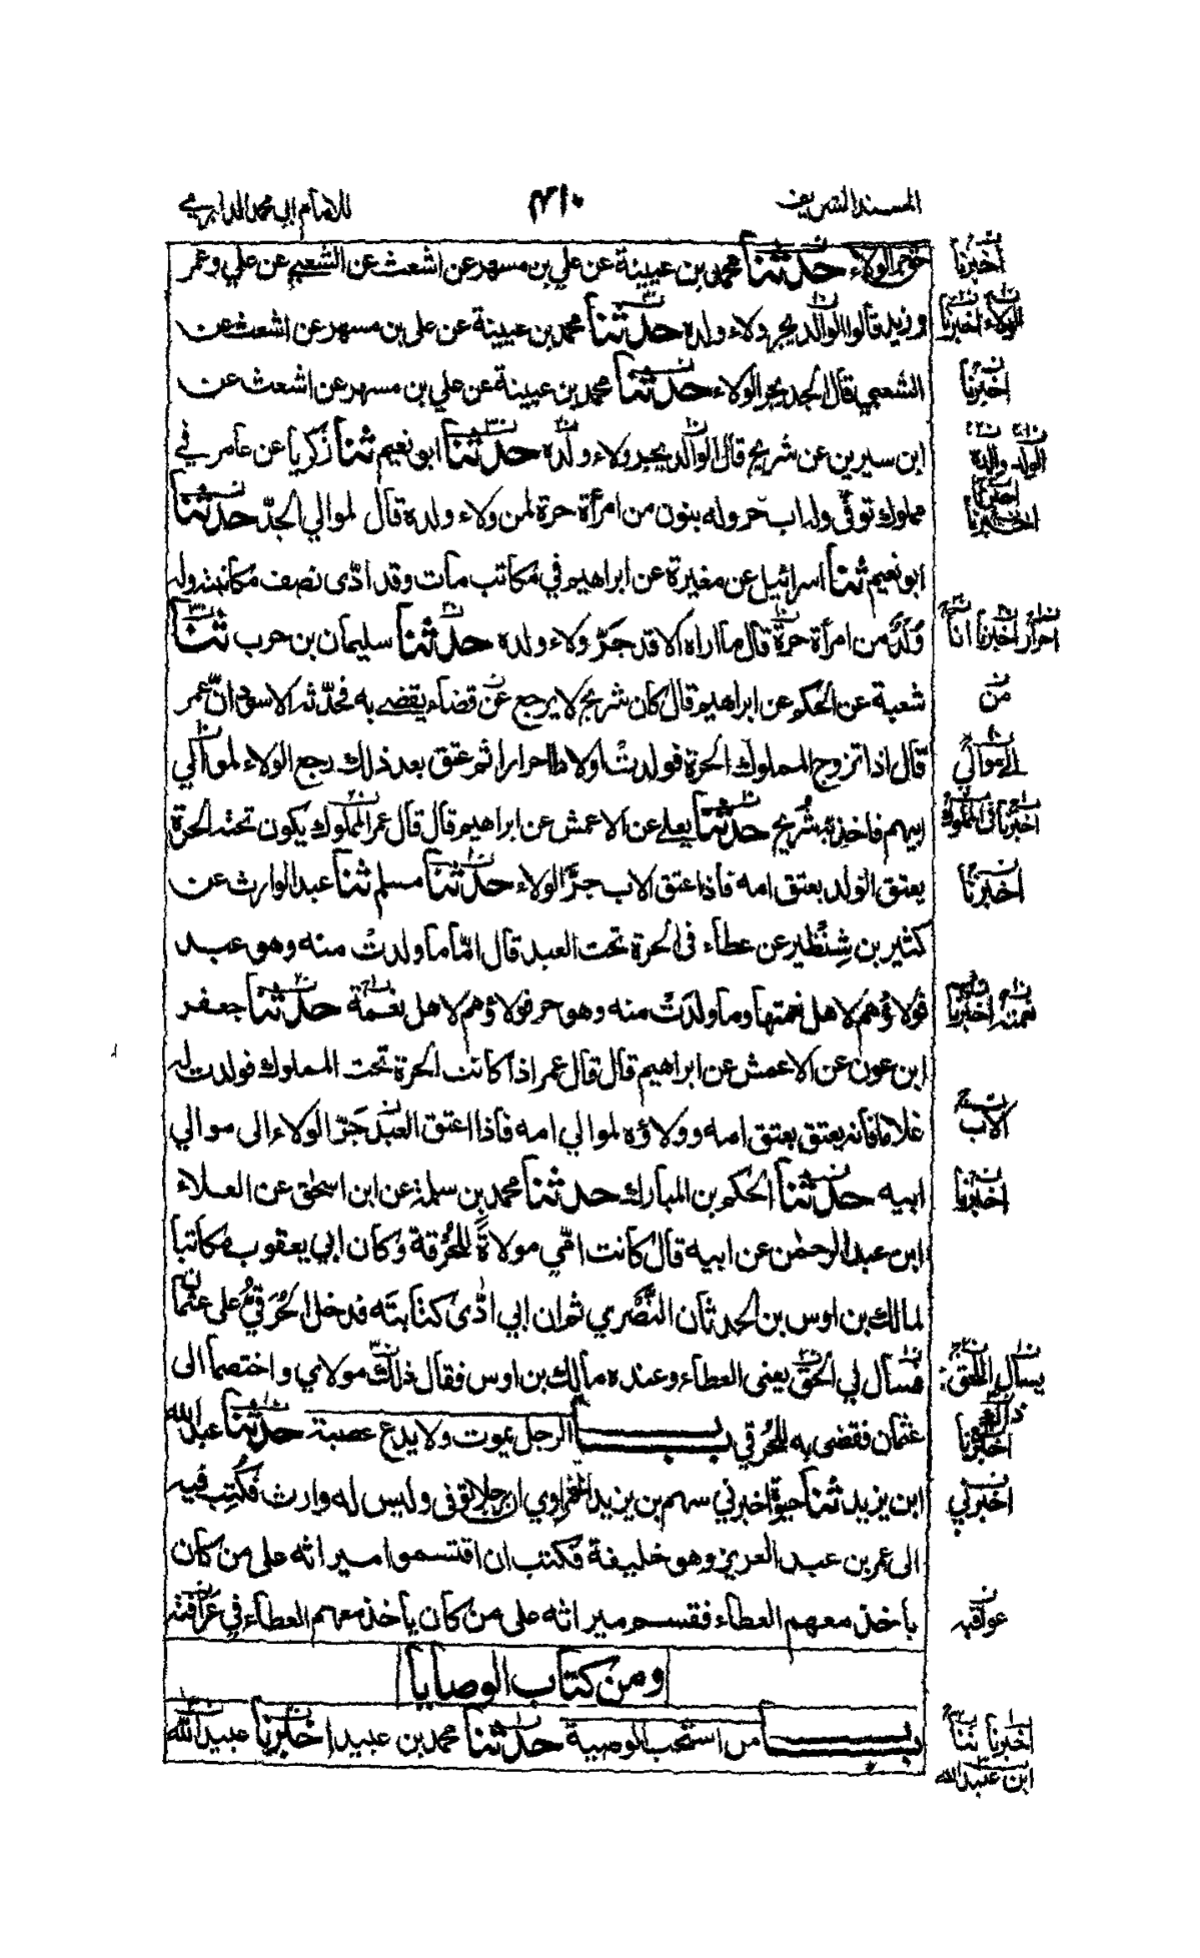 المسند الشريف ٤١٠ للامام ابي محمد الدارمي
الولاء حدثنا محمد بن عيينة عن علي بن مسهر عن اشعث عن الشعبي عن علي وعمر
وزيد قالوا الوالد يجر ولاء ولده حدثنا محمد بن عيينة عن علي بن مسهر عن اشعث عن
الشعبي قال الجد يجر الولاء حدثنا محمد بن عيينة عن علي بن مسهر عن اشعث عن
ابن سيرين عن شريح قال الوالد يجر ولاء ولده حدثنا ابو نعيم ثنا زكريا عن عامر في
مملوك توفي وله اب حر وله بنون من امرأة حرة لمن ولاء ولده قال لموالي الجد حدثنا
ابو نعيم ثنا اسرائيل عن مغيرة عن ابراهيم في مكاتب مات وقد ادى نصف مكاتبته وله
ولد من امرأة حرة قال ما اراه الا قد جر ولاء ولده حدثنا سليمان بن حرب ثنا
شعبة عن الحكم عن ابراهيم قال كان شريح لا يرجع عن قضاء يقضي به فحدثه الاسود ان عمر
قال اذا تزوج المملوك الحرة فولدت اولادا احرارا ثم عتق بعد ذلك رجع الولاء لموالي
ابيهم فاخذ به شريح حدثنا يعلى عن الاعمش عن ابراهيم قال قال عمر المملوك يكون تحته الحرة
يعتق الولد بعتق امه فاذا عتق الاب جر الولاء حدثنا مسلم ثنا عبد الوارث عن
كثير بن شنظير عن عطاء في الحرة تحت العبد قال اما ما ولدت منه وهو عبد
فولاؤهم لاهل نعمتها وما ولدت منه وهو حر فولاؤهم لاهل نعمة حدثنا جعفر
ابن عون عن الاعمش عن ابراهيم قال قال عمر اذا كانت الحرة تحت المملوك فولدت له
غلاما فانه يعتق بعتق امه وولاؤه لموالي امه فاذا اعتق العبد جر الولاء الى موالي
ابيه حدثنا الحكم بن المبارك حدثنا محمد بن سلمة عن ابن اسحق عن العلاء
ابن عبد الرحمن عن ابيه قال كانت امي مولاة للحرقة وكان ابي يعقوب مكاتبا
لمالك بن اوس بن الحدثان النصري ثم ان ابي ادى كتابته فدخل الحرقي على عثمان
فسأل لي الحق يعني العطاء وعنده مالك بن اوس فقال ذلك مولاي واختصما الى
عثمان فقضى به للحرقي باب الرجل يموت ولا يدع عصبة حدثنا عبد الله
ابن يزيد ثنا حيوة اخبرني سهم بن يزيد الحمراوي ان رجلا توفي وليس له وارث فكتب فيه
الى عمر بن عبد العزيز وهو خليفة فكتب ان اقتسموا ميراثه على من كان
يأخذ معهم العطاء فقسم ميراثه على من كان يأخذ معهم العطاء في عرافته
ومن كتاب الوصايا
باب من استحب الوصية حدثنا محمد بن عبيد اخبرنا عبيد الله
اخبرنا
الولاء اخبرنا
اخبرنا
الولد والده
اخبرنا
احرار اخبرنا انا
من
الى موالي
اخبرنا في المملوك
اخبرنا
نعمته اخبرنا
الاب
اخبرنا
يسأل الحق
ذاك
اخبرنا
اخبرني
عوافيه
اخبرنا ثنا
ابن عبد الله